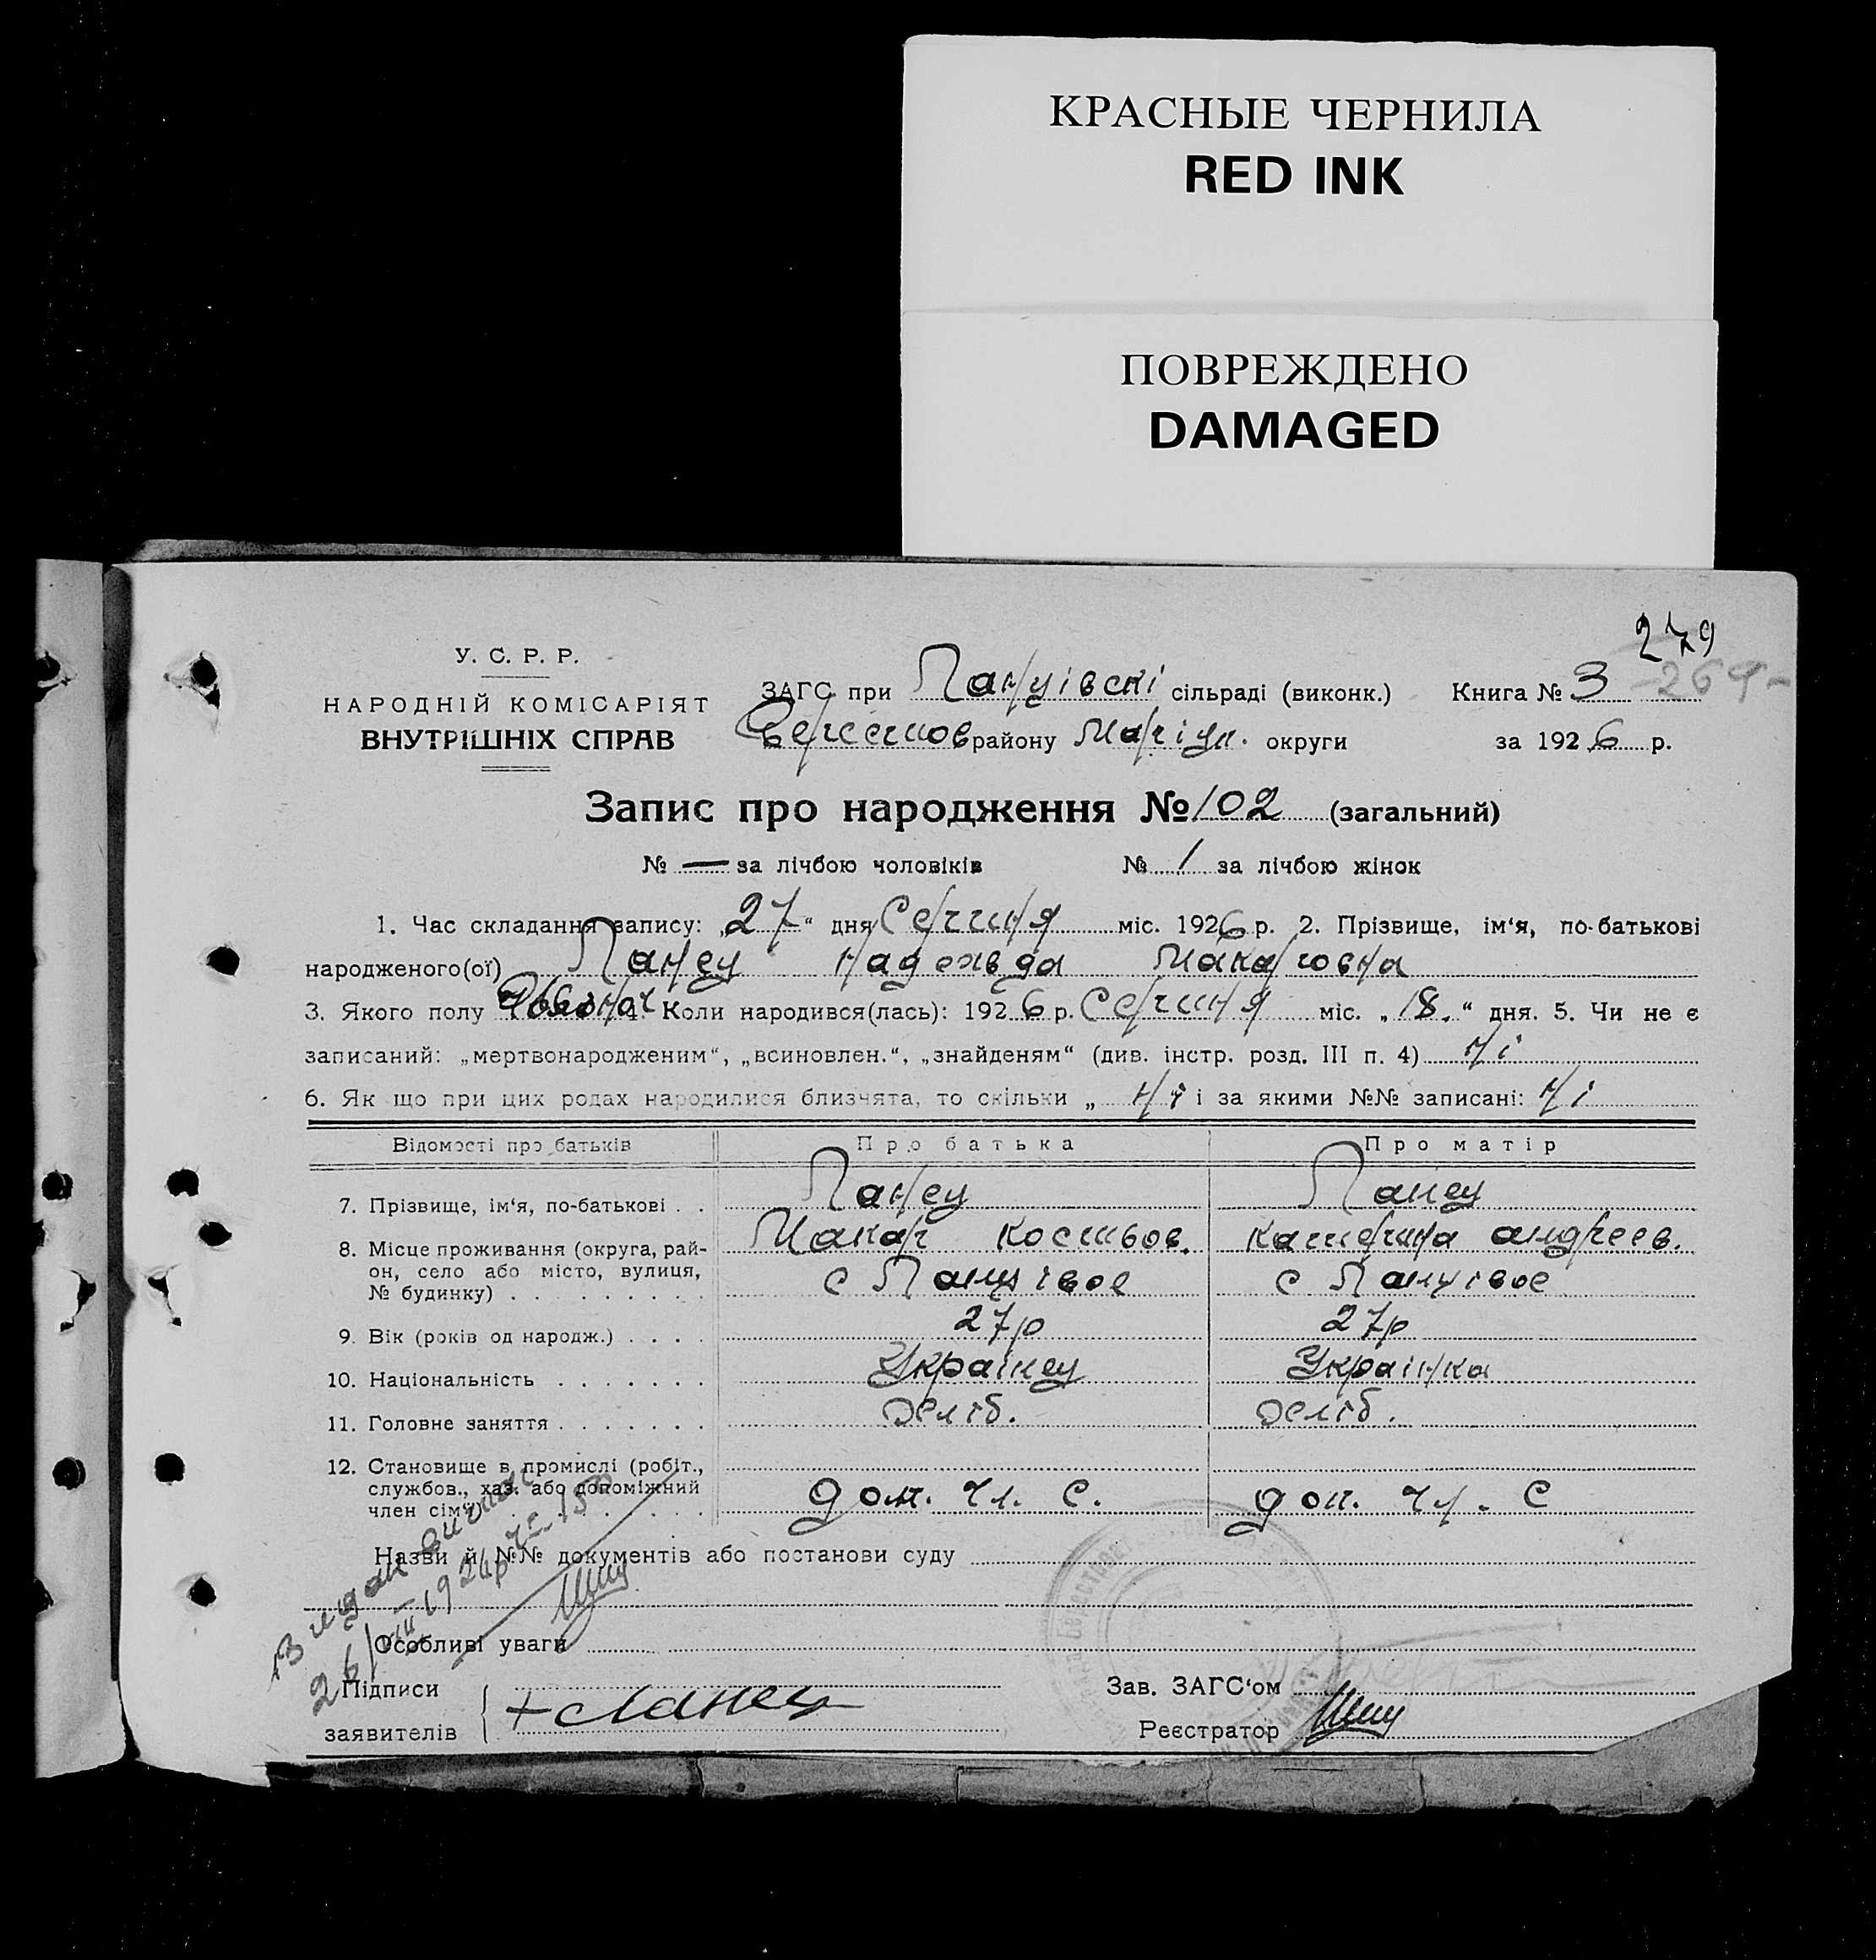 КРАСНЫЕ ЧЕРНИЛА
RED INK
ПОВРЕЖДЕНО
DAMAGED
279
-269-
У. С. Р. Р.
НАРОДНІЙ КОМІСАРІЯТ
ВНУТРІШНІХ СПРАВ
ЗАГС при Панцівскі сільраді (виконк.) Книга № 3
району Маріуп. округи за 1926 р.
Запис про народження № 102 (загальний)
№ — за лічбою чоловіків № 1 за лічбою жінок
1. Час складання запису: „27“ дня Серпня міс. 1926 р. 2. Прізвище, ім‘я, по-батькові
народженого(ої) Панец Надежда Макаровна
3. Якого полу 4. Коли народився(лась): 1926 р. Серпня міс. „18.“ дня. 5. Чи не є
записаний: „мертвонародженим“, „всиновлен.“, „знайденям“ (див. інстр. розд. III п. 4) Ні
6. Як що при цих родах народилися близнята, то скільки „ Ні і за якими №№ записані: Ні
Відомості про батьків Про батька Про матір
7. Прізвище, ім‘я, по-батькові . . Панец Панец
Макар Костьов. Катерина Андреев.
8. Місце проживання (округа, рай-
он, село або місто, вулиця, с с
№ будинку) . . . . . . . . .
9. Вік (років од народж.) . . . . 27р 27р
10. Національність . . . . . . . Українец Українка
11. Головне заняття . . . . . . . Хліб. Хліб.
12. Становище в промислі (робіт.,
службов., хаз. або допоміжний доп. чл. С. доп. чл. С
член сім‘ї) . . . . . . . .
Назви й №№ документів або постанови суду
Особливі уваги
Підписи
заявителів
Зав. ЗАГС‘ом
Реєстратор